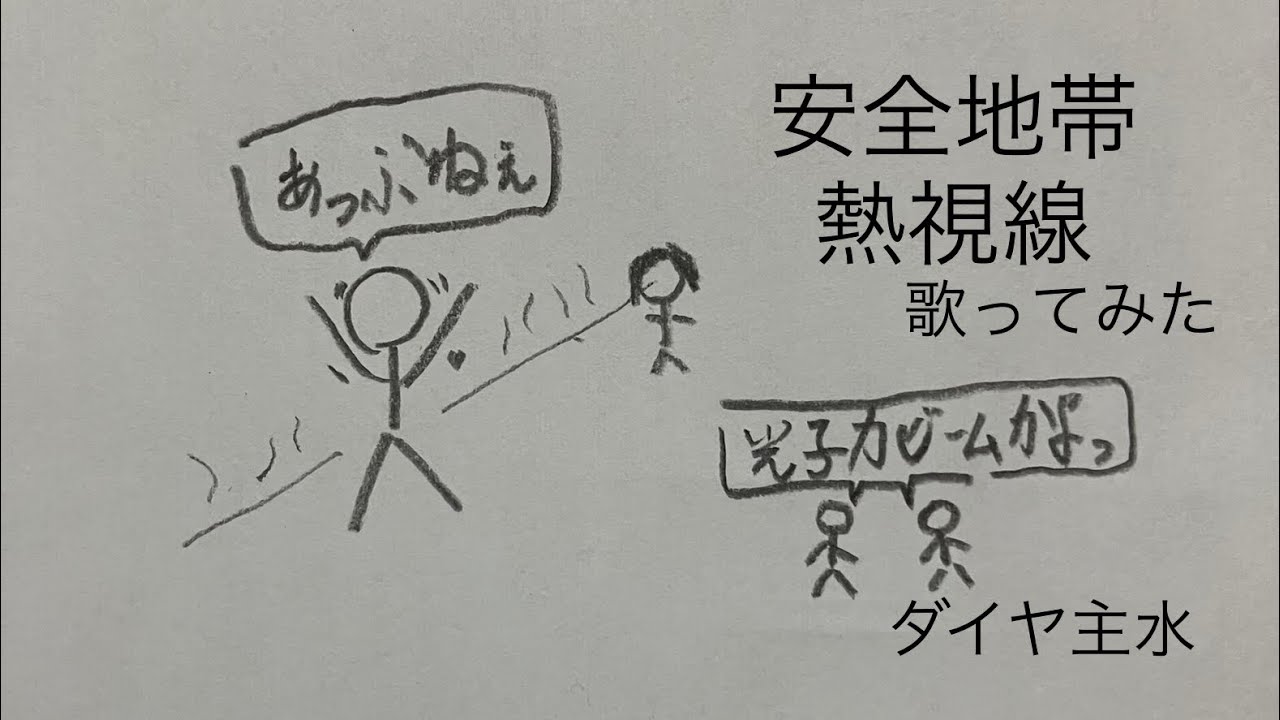 安全地帯
熱視線
歌ってみた
あっぶねぇ
光子力ビームかよっ
ダイヤ主水